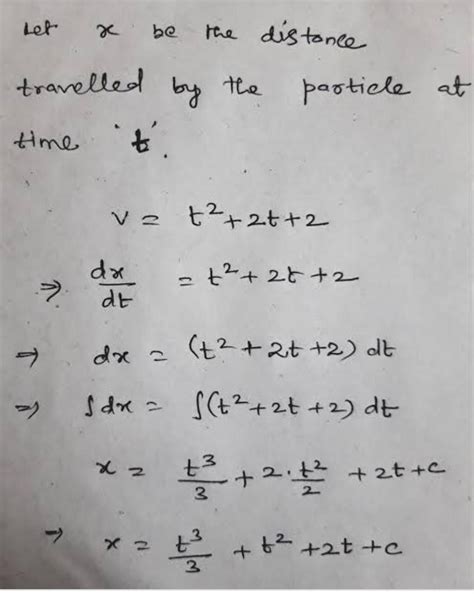 Let x be the distance
travelled by the particle at
time 't'.
v = t² + 2t + 2
⇒ dx/dt = t² + 2t + 2
⇒ dx = (t² + 2t + 2) dt
⇒ ∫dx = ∫(t² + 2t + 2) dt
x = t³/3 + 2 · t²/2 + 2t + c
⇒ x = t³/3 + t² + 2t + c